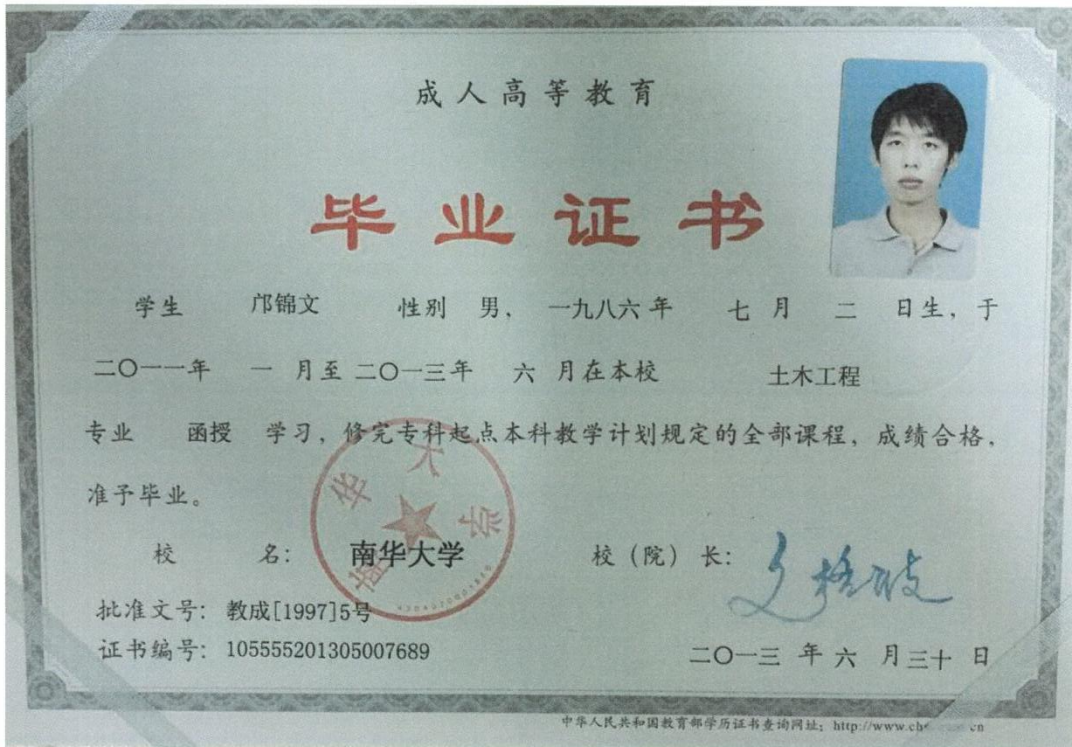 成人高等教育
毕业证书
学生 邝锦文 性别 男， 一九八六 年 七 月 二 日生，于
二〇一一年 一 月至 二〇一三年 六 月在本校 土木工程
专业 函授 学习，修完专科起点本科教学计划规定的全部课程，成绩合格，
准予毕业。
校 名： 南华大学 校（院）长： 文格波
南华大学
批准文号：教成[1997]5号
证书编号：105555201305007689
二〇一三 年 六 月 三十 日
中华人民共和国教育部学历证书查询网址：http://www.ch
cn